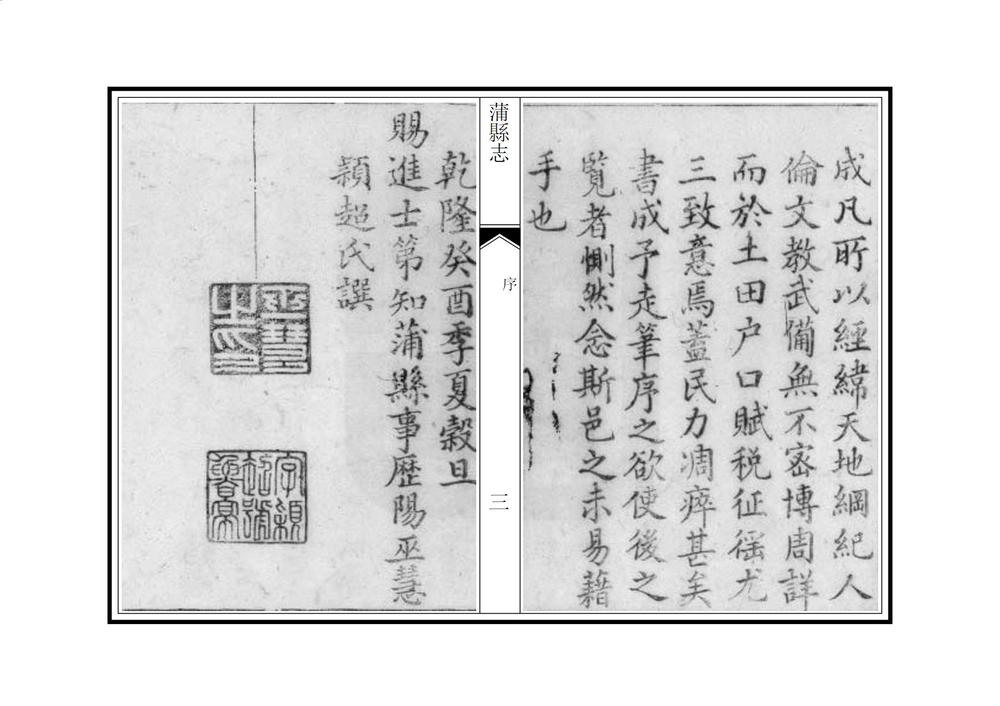 成凡所以經緯天地綱紀人
倫文教武備無不宻博周詳
而於土田户口賦税征徭尤
三致意焉蓋民力凋瘁甚矣
書成予走筆序之欲使後之
覧者惻然念斯邑之未易藉
手也
蒲縣志
序
三
乾隆癸酉季夏穀旦
賜進士第知蒲縣事歷陽巫慧
頴超氏譔
巫慧
之印
字頴
超號